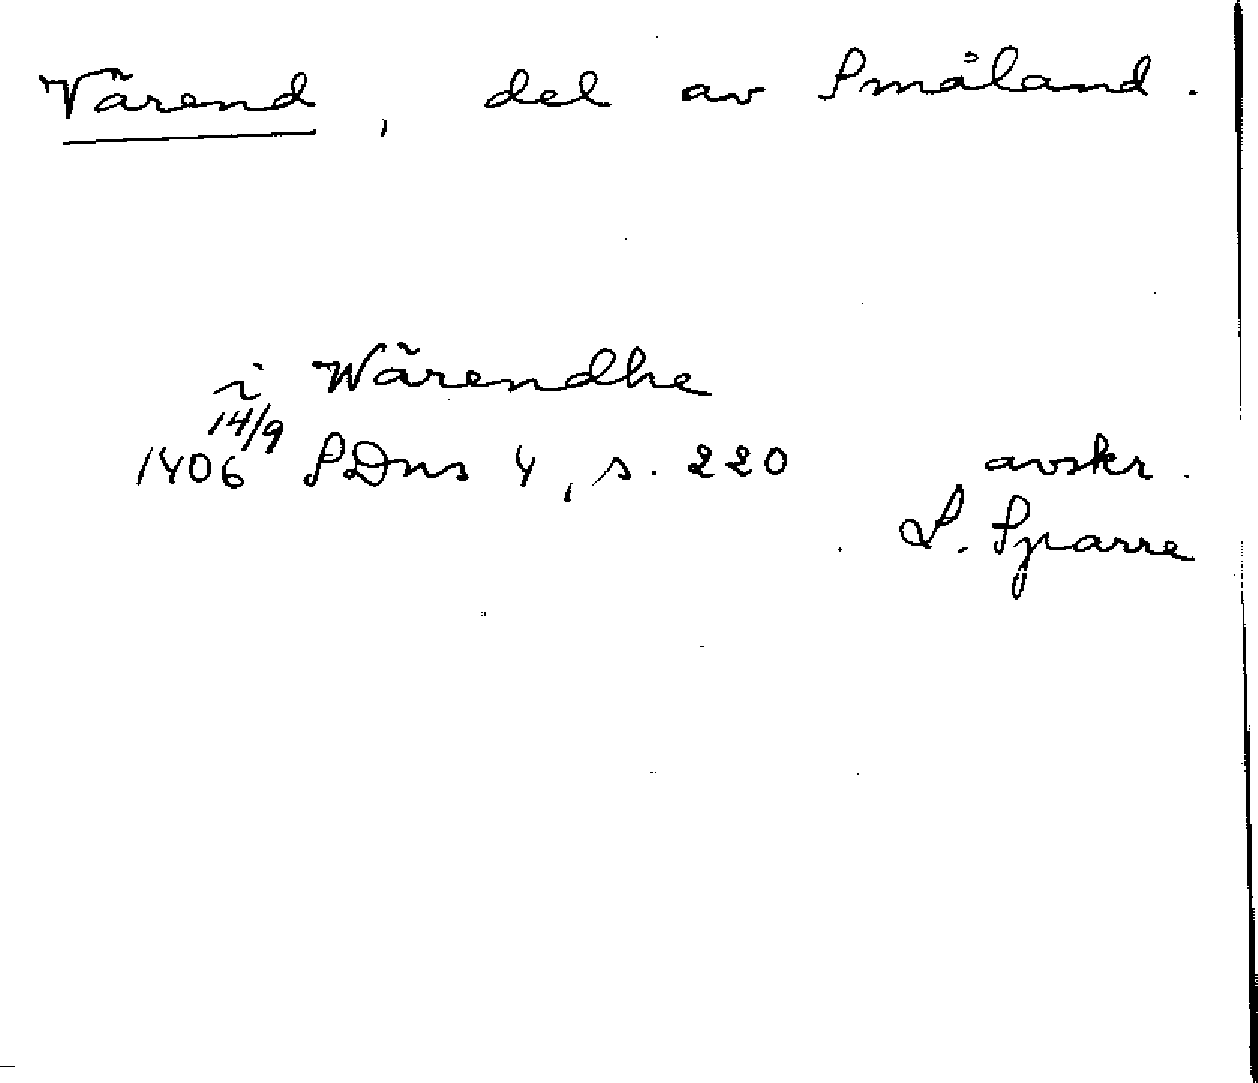 Värend, del av Småland.
i Wärendhe
14/9
1406 SDns 4, s. 220 avskr.
L. Sparre